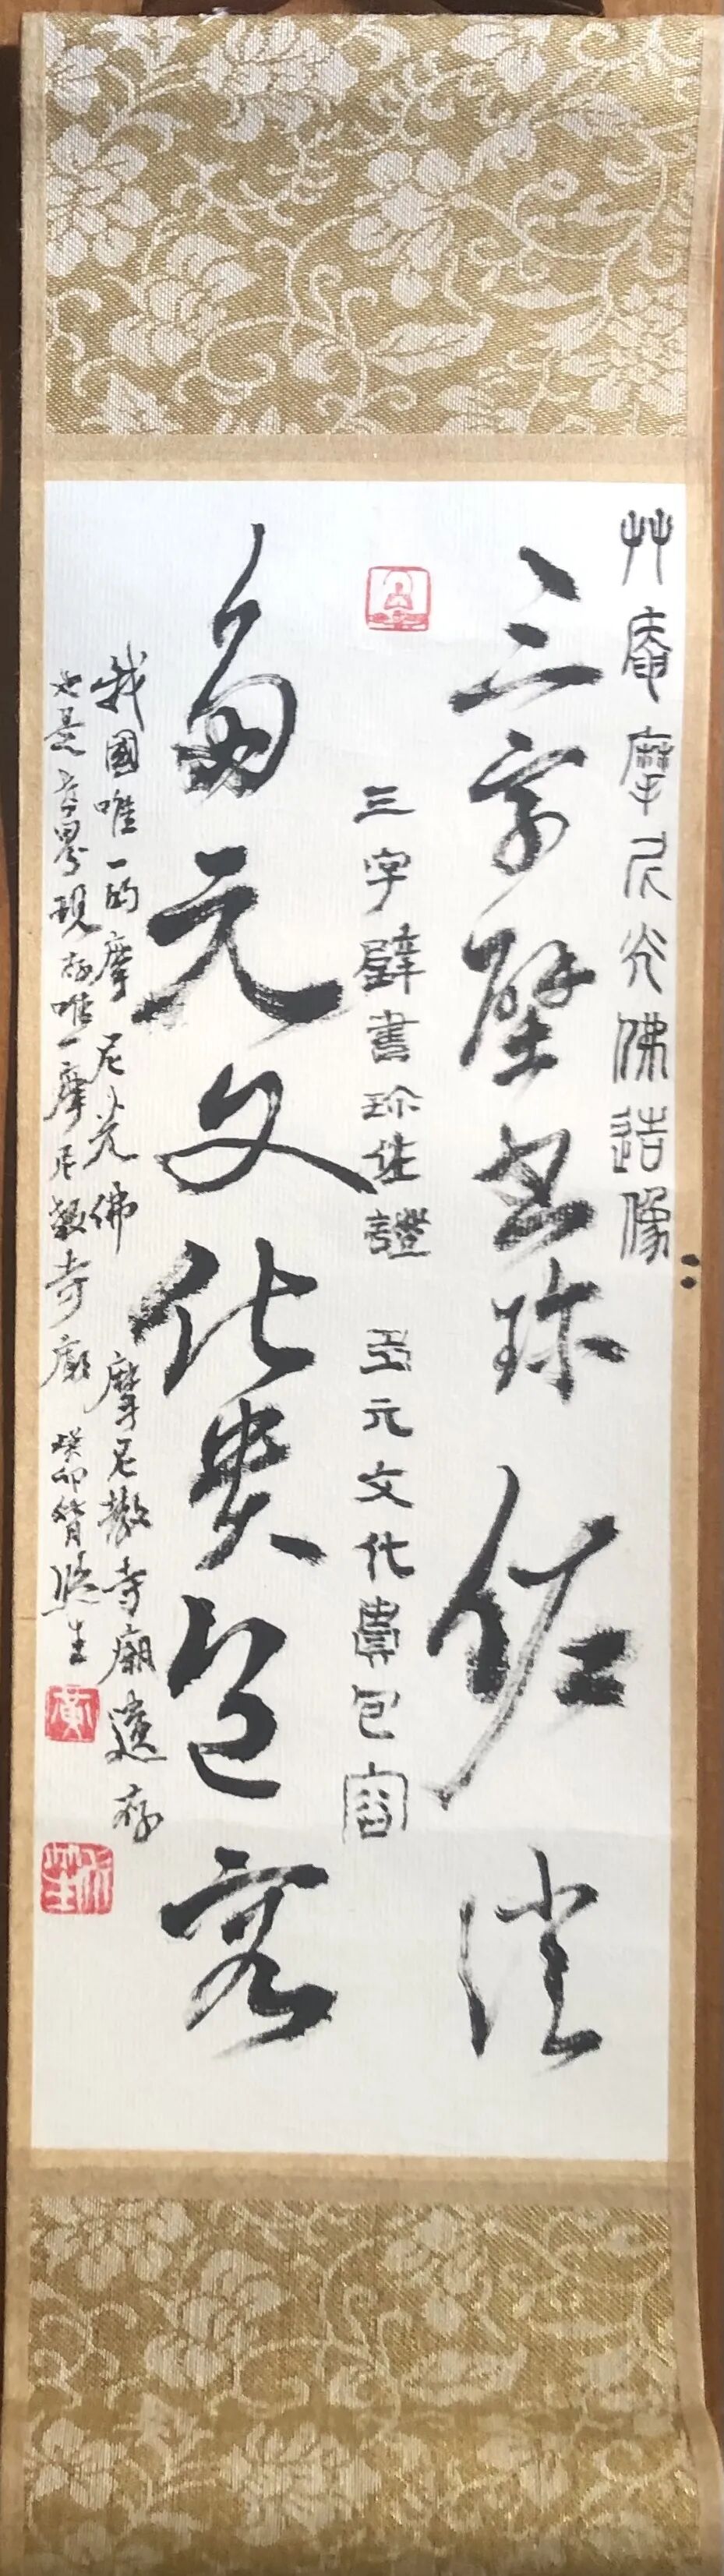 艸庵摩尼光佛造像
三字壁書珍佐證
三字壁書珍佐證 多元文化貴包容
多元文化貴包容
我國唯一的摩尼光佛 摩尼教寺廟遺存
也是世界現存唯一摩尼教寺廟 癸卯